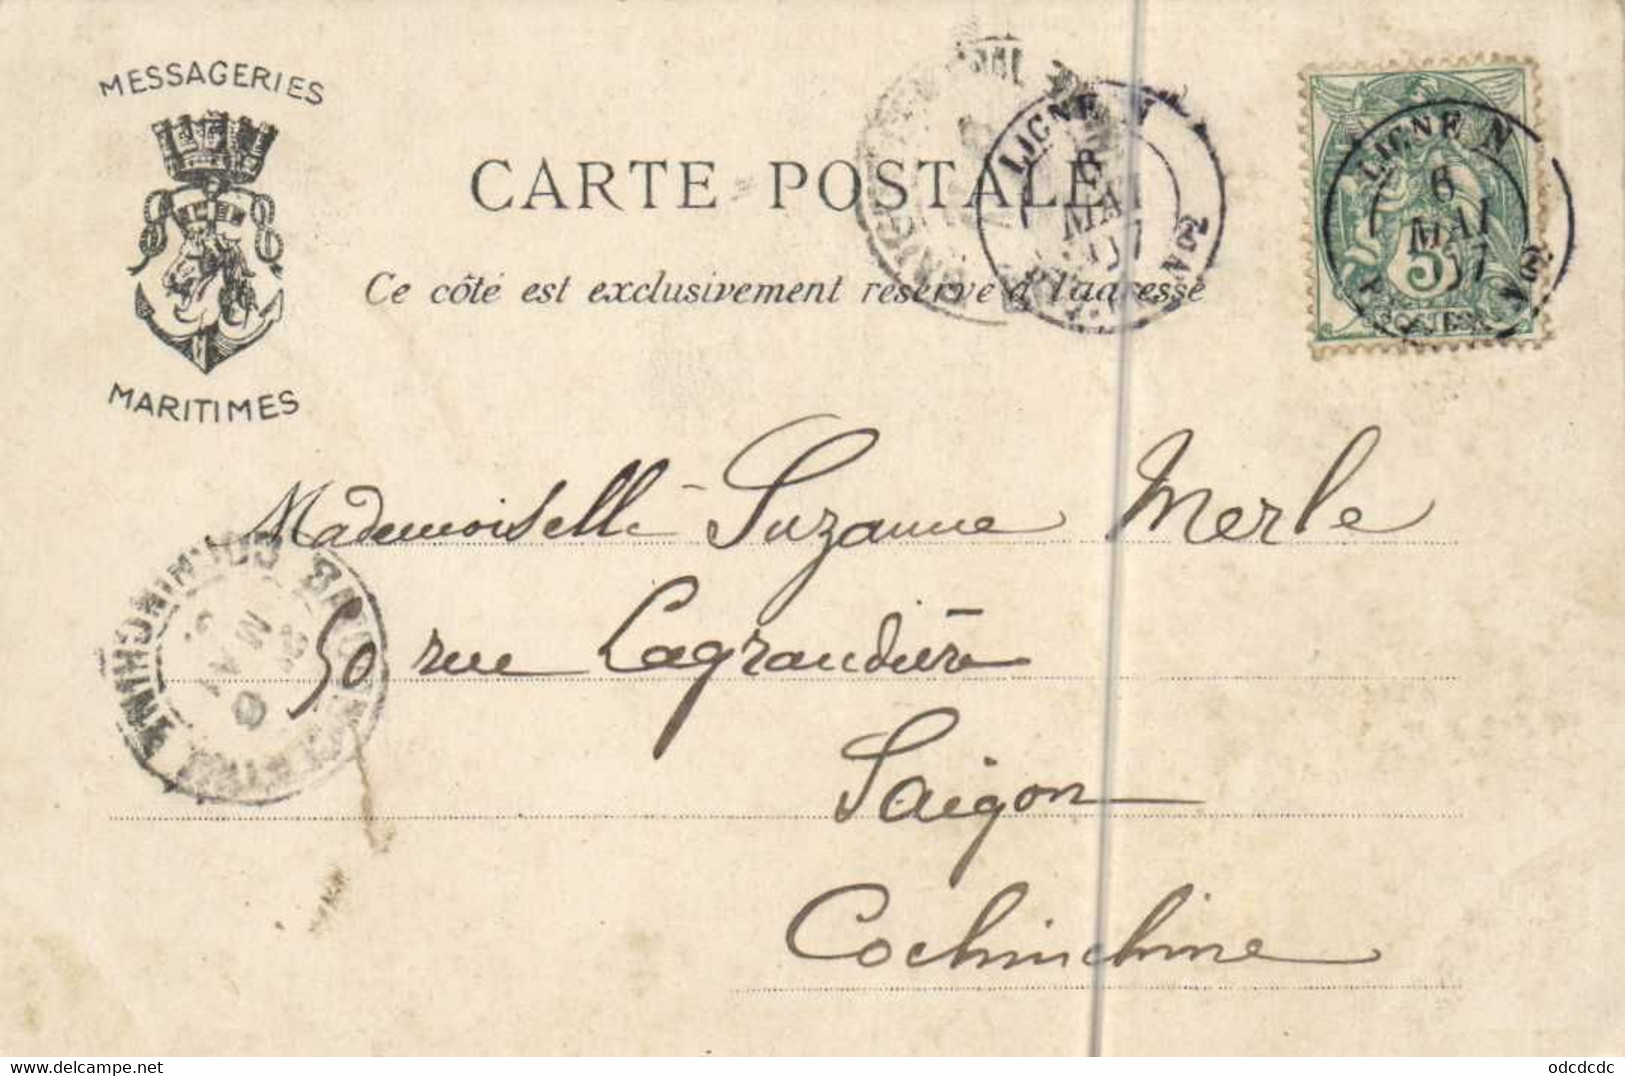 MESSAGERIES
MARITIMES
CARTE POSTALE
Ce côté est exclusivement réservé à l'adresse
LIGNE N
6
MAI
07
PAQ. FR. Nº2
LIGNE N
6
MAI
07
Nº2
5
POSTES
Mademoiselle Suzanne Merle
50 rue Lagrandière
Saigon
Cochinchine
COCHINCHINE
MAI
odcdcdc